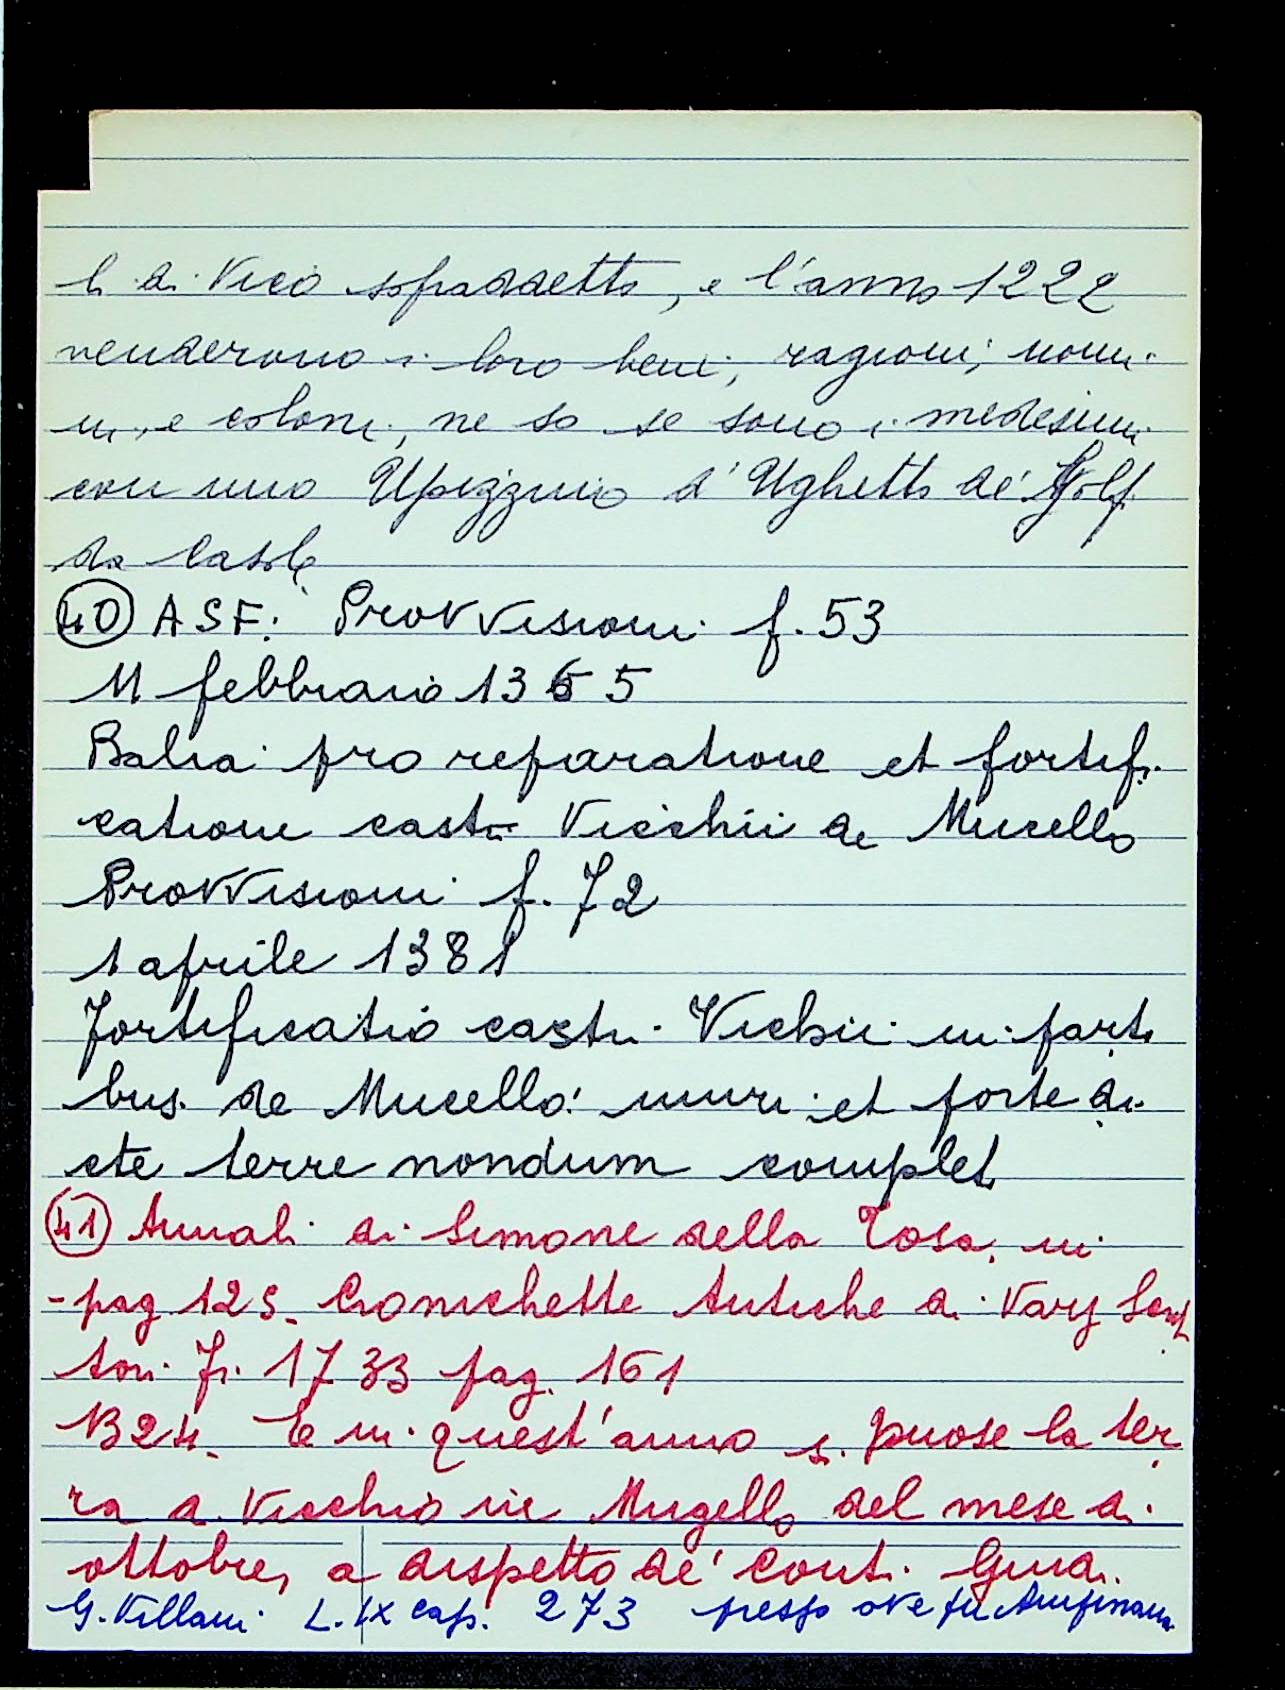 li di Vico sopraddetto, e l'anno 1222
venderono i loro beni, ragioni, nomi
ni, e coloni, ne so se sono i medesimi
con uno Upizzino d'Ughetto de'
da Casole
40 ASF: Provvisioni f. 53
11 febbraio 1365
Balia pro reparatione et fortifi
catione castri Vicchii de Mucello
Provvisioni f. 72
1 aprile 1381
Fortificatio castri Vichii in parti
bus de Mucello: muri et porte di
cte terre nondum complet
41 Annali di Simone della Tosa, in
- pag 125 Cronichette Antiche di Varj Scrit
tori Fi. 1733 pag. 161
1324. E in quest'anno si puose la ter
ra di Vicchio in Mugello del mese di
ottobre, a dispetto de' conti Guidi.
G. Villani L. IX cap. 273 presso ove fu Ampinana